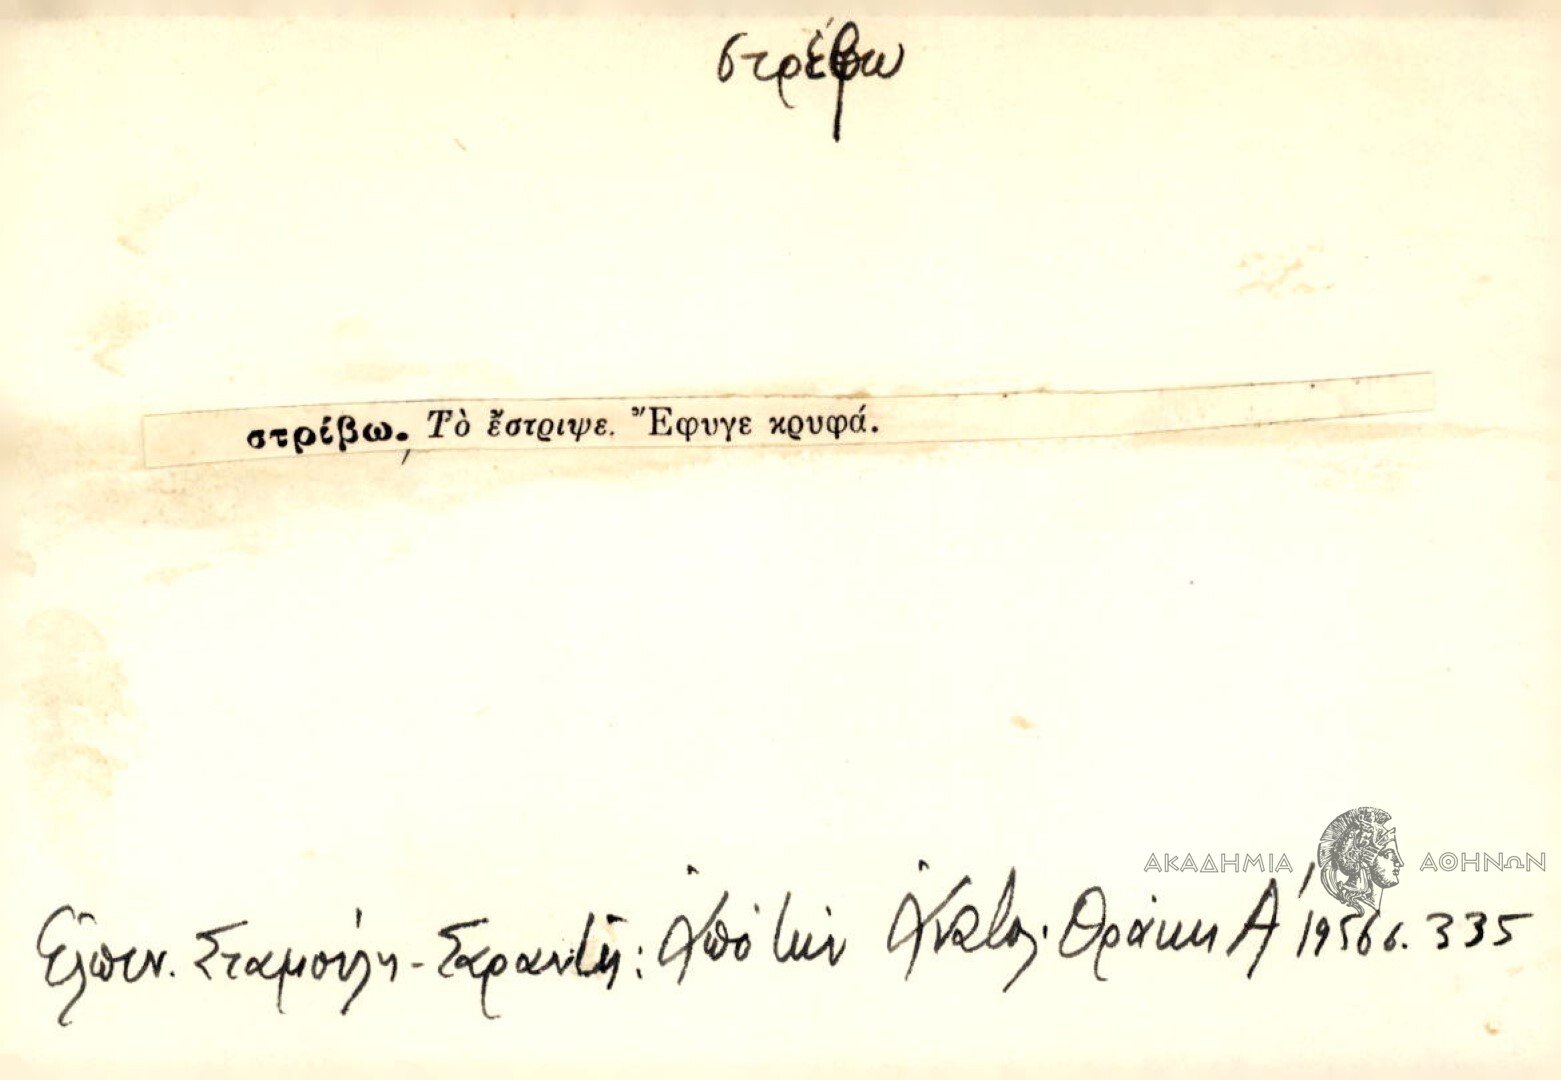 στρέφω
στρίβω. Τὸ ἔστριψε. Ἔφυγε κρυφά.
ΑΚΑΔΗΜΙΑ ΑΘΗΝΩΝ
Ἐλπιν. Σταμούλη - Σαραντῆ: Ἀπὸ τὴν Ἀνατολ. Θράκη Α' 1956 σ. 335